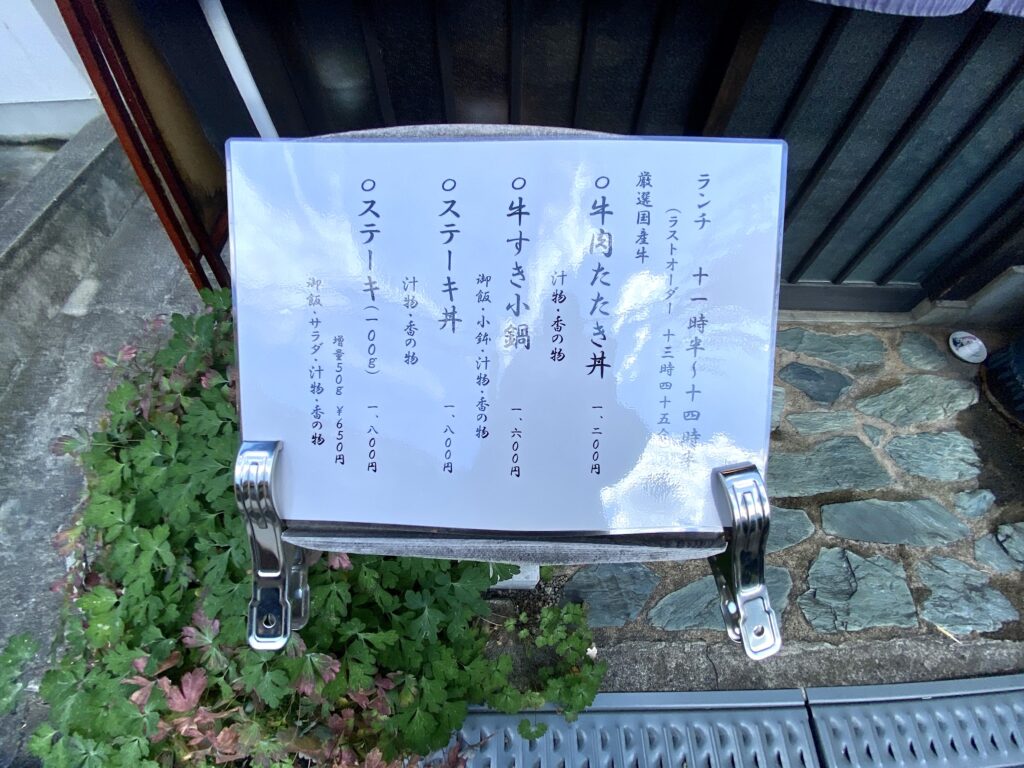 ランチ 十一時半～十四時半
(ラストオーダー 十三時四十五分)
厳選国産牛
○牛肉たたき丼 一、二００円
汁物・香の物
○牛すき小鍋 一、六００円
御飯・小鉢・汁物・香の物
○ステーキ丼 一、八００円
汁物・香の物
○ステーキ(一００g) 一、八００円
増量50g ¥650円
御飯・サラダ・汁物・香の物